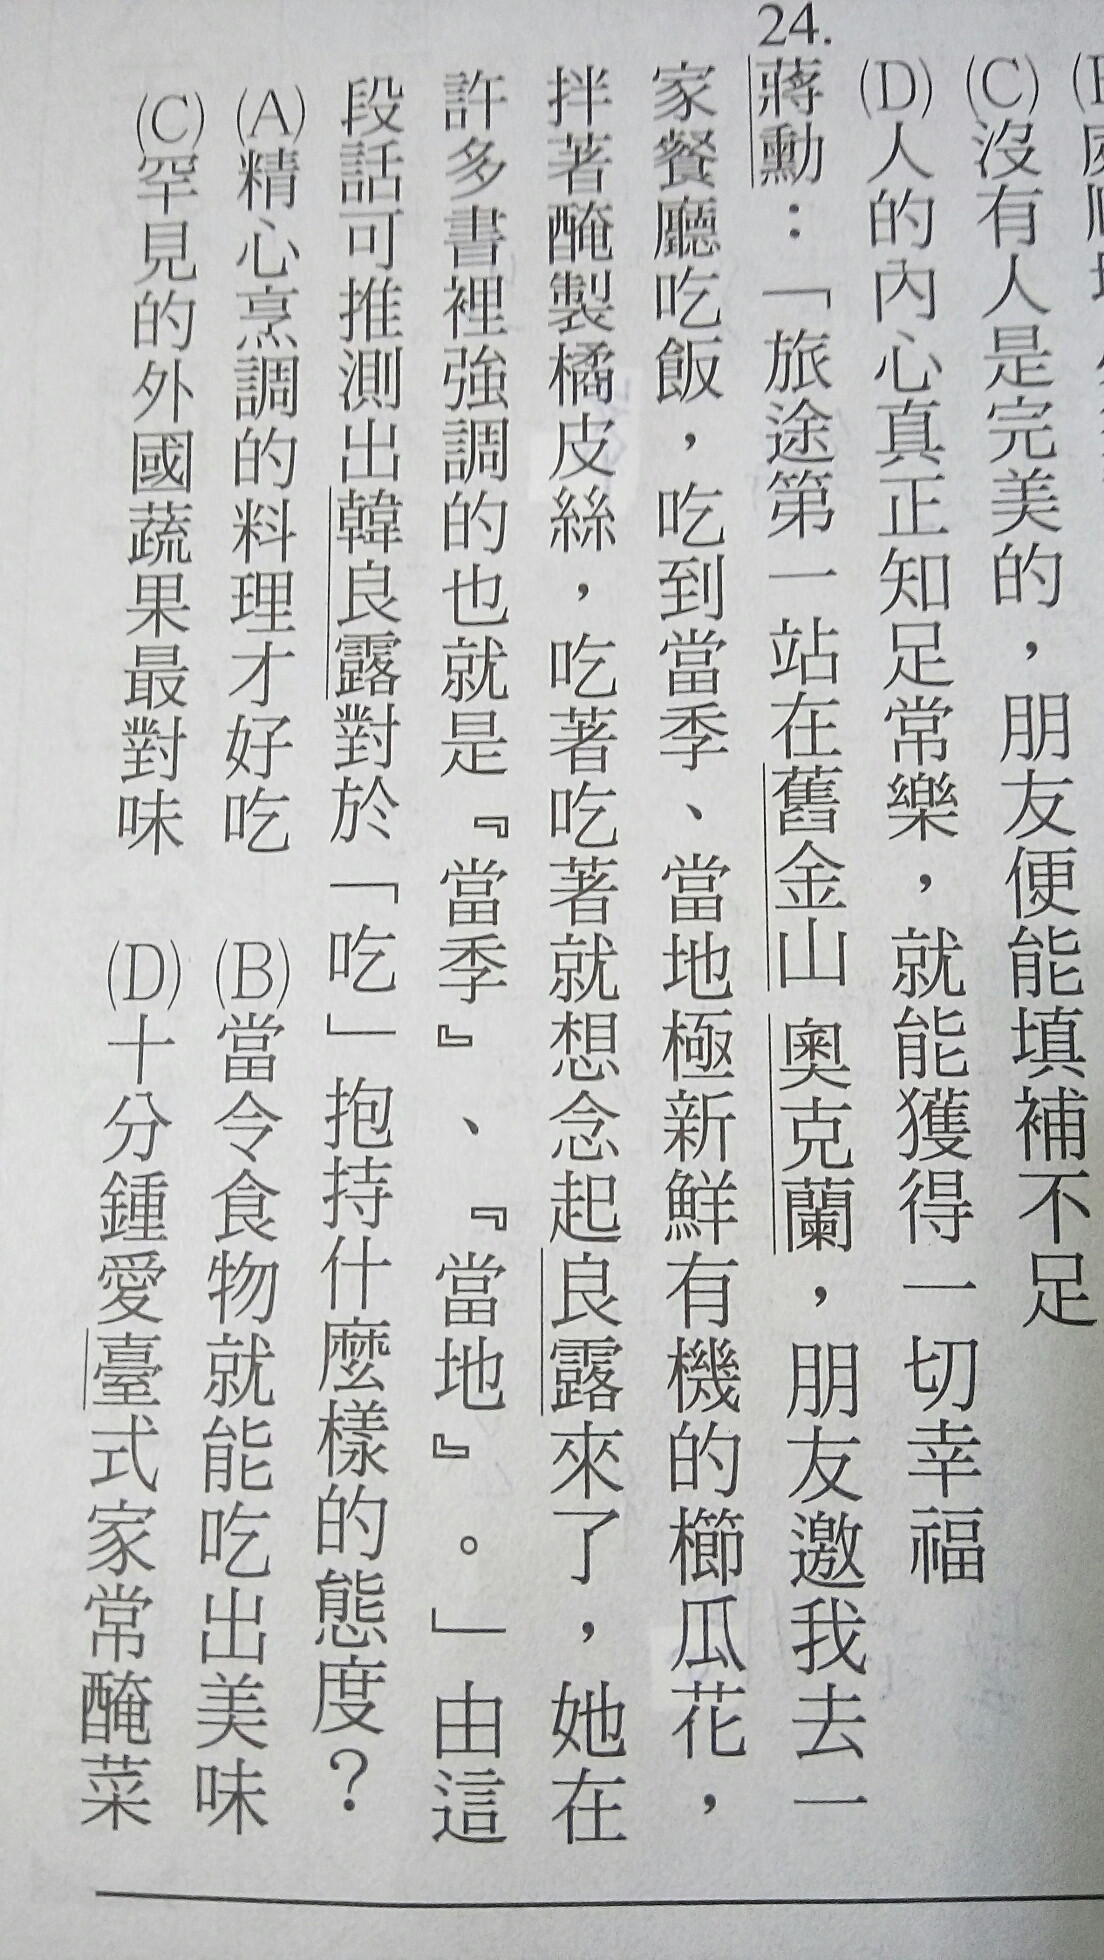 (C)沒有人是完美的，朋友便能填補不足
(D)人的內心真正知足常樂，就能獲得一切幸福
24.
蔣勳：「旅途第一站在舊金山 奧克蘭，朋友邀我去一
家餐廳吃飯，吃到當季、當地極新鮮有機的櫛瓜花，
拌著醃製橘皮絲，吃著吃著就想念起良露來了，她在
許多書裡強調的也就是『當季』、『當地』。」由這
段話可推測出韓良露對於「吃」抱持什麼樣的態度？
(A)精心烹調的料理才好吃 (B)當令食物就能吃出美味
(C)罕見的外國蔬果最對味 (D)十分鍾愛臺式家常醃菜